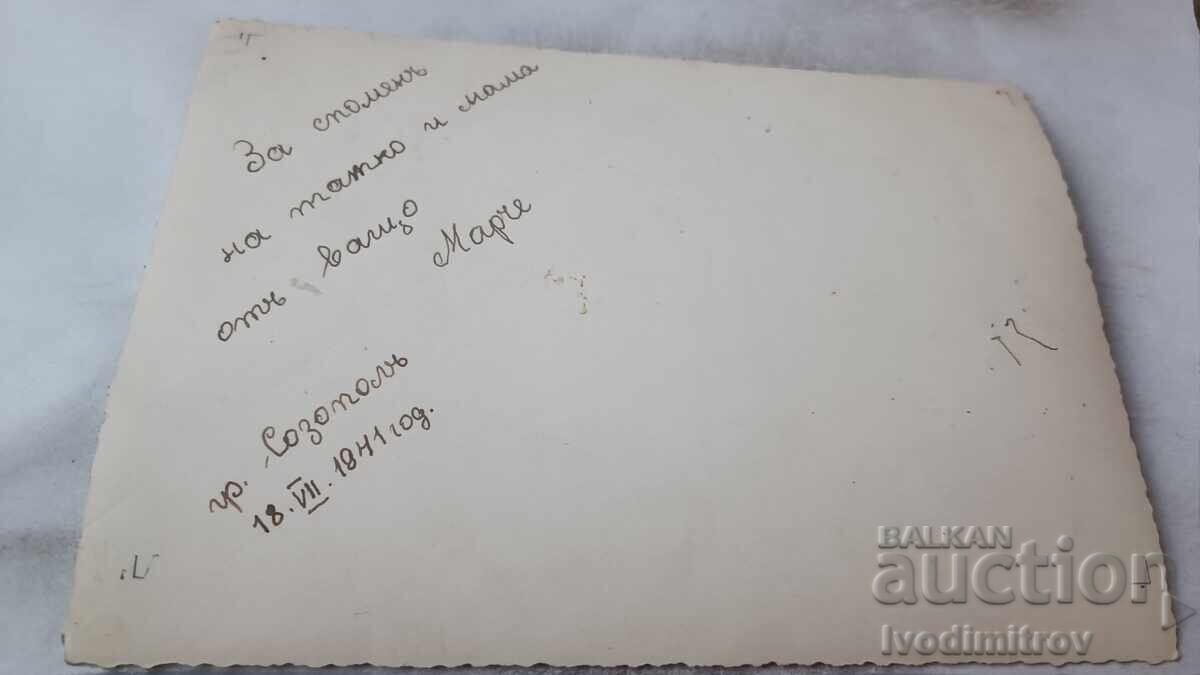 За споменъ
на татко и мама
отъ Вашо
Марче
гр. Созополъ
18.VII.1941 год.
BALKAN
auction
Ivodimitrov